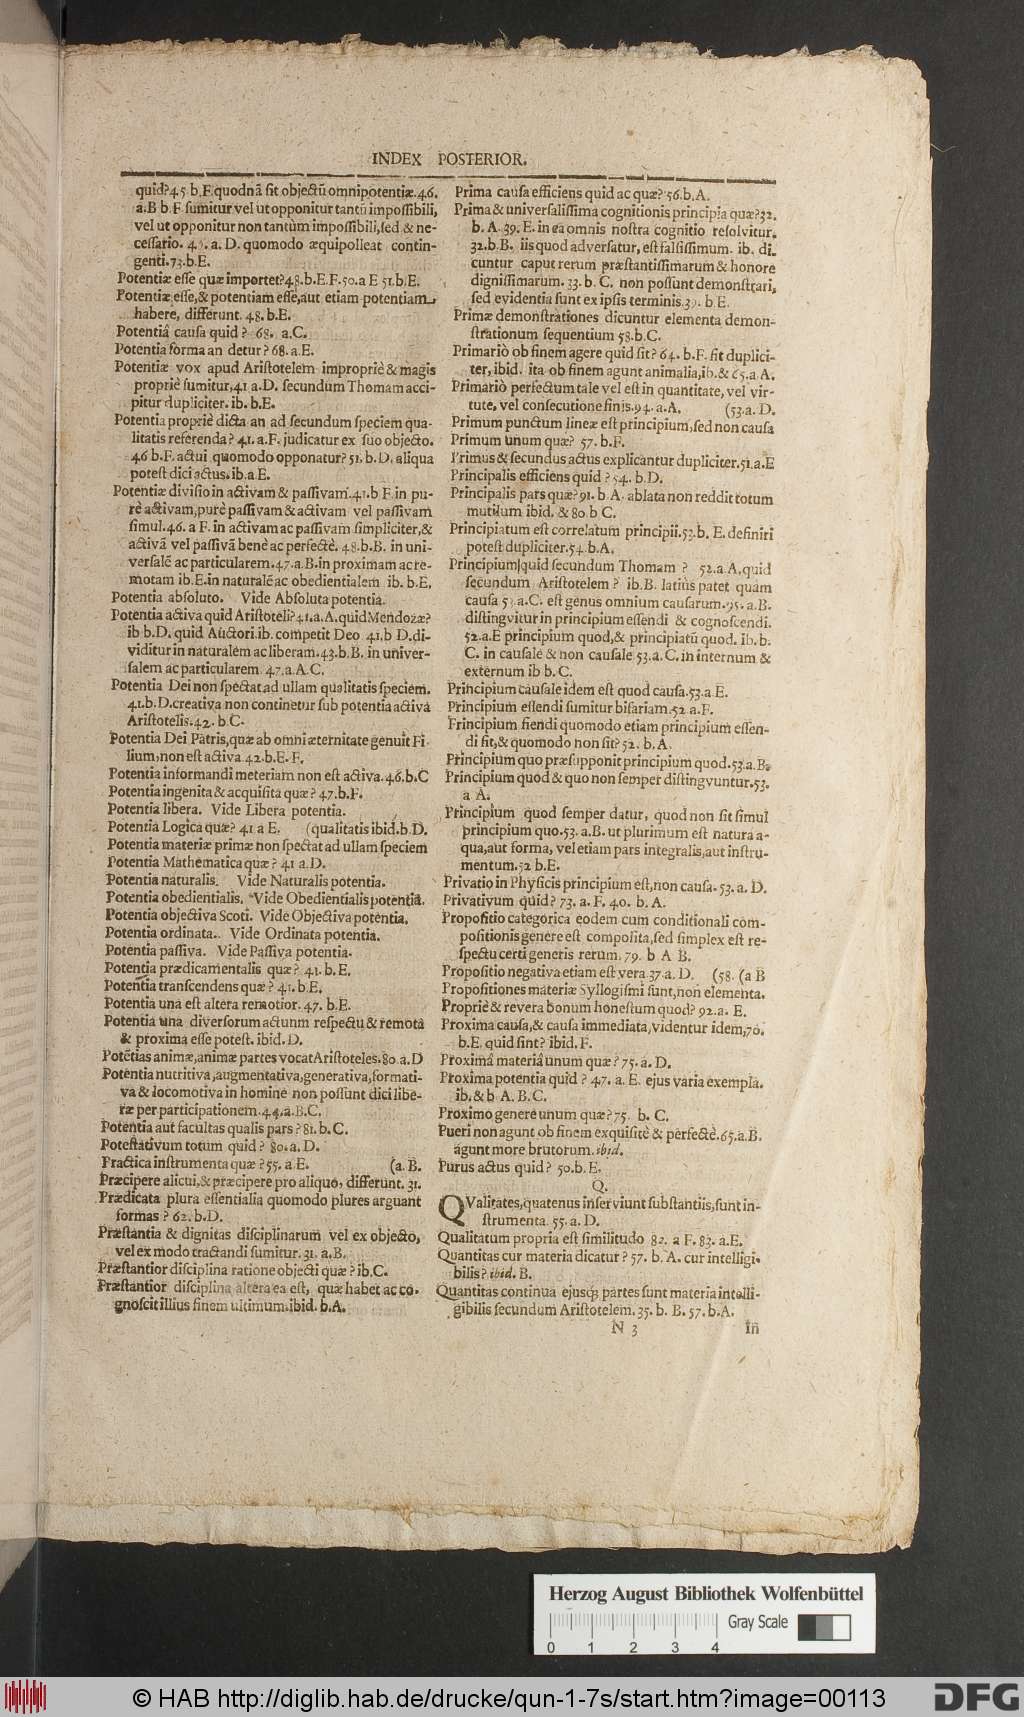 INDEX POSTERIOR.
quid? 45 b.F. quodnã sit objectũ omnipotentiæ. 46.
a.B b.F sumitur vel ut opponitur tantũ impossibili,
vel ut opponitur non tantùm impossibili, sed & ne-
cessario. a. D. quomodo æquipolleat contin-
genti. 73. b.E.
Potentiæ esse quæ importet? 48. b.E F. 50. a E 51. b.E.
Potentiæ esse, & potentiam esse, aut etiam potentiam
habere, differunt. 48. b.E.
Potentiâ causa quid? 68. a.C.
Potentia forma an detur? 68. a.E.
Potentiæ vox apud Aristotelem impropriè & magis
propriè sumitur, 41 a.D. secundum Thomam acci-
pitur dupliciter. ib. b.E.
Potentia propriè dicta an ad secundum speciem qua-
litatis referenda? 41. a.F. judicatur ex suo objecto.
46 b.F. actui quomodo opponatur? 51. b.D. aliqua
potest dici actus. ib. a E.
Potentiæ divisio in activam & passivam. 41. b F. in pu-
rè activam, purè passivam & activam vel passivam
simul. 46. a F. in activam ac passivam simpliciter, &
activã vel passivã benè ac perfectè. 48. b.B. in uni-
versalẽ ac particularem. 47. a.B. in proximam ac re-
motam ib. E. in naturalẽ ac obedientialem ib. b.E.
Potentia absoluto. Vide Absoluta potentia.
Potentia activa quid Aristoteli? 41. a.A. quid Mendozæ?
ib b.D. quid Auctori. ib. competit Deo 41. b D. di-
viditur in naturalem ac liberam. 43. b.B. in univer-
salem ac particularem. 47. a.A.C.
Potentia Dei non spectat ad ullam qualitatis speciem.
41. b.D. creativa non continetur sub potentia activa
Aristotelis. 42. b.C.
Potentia Dei Patris, quæ ab omni æternitate genuit Fi-
lium, non est activa 42. b.E.F.
Potentia informandi meteriam non est activa. 46. b.C
Potentia ingenita & acquisita quæ? 47. b.F.
Potentia libera. Vide Libera potentia.
Potentia Logica quæ? 41 a E. (qualitatis ibid. b D.
Potentia materiæ primæ non spectat ad ullam speciem
Potentia Mathematica quæ? 41 a.D.
Potentia naturalis. Vide Naturalis potentia.
Potentia obedientialis. Vide Obedientialis potentia.
Potentia objectiva Scoti. Vide Objectiva potentia.
Potentia ordinata. Vide Ordinata potentia.
Potentia passiva. Vide Passiva potentia.
Potentia prædicamentalis quæ? 41. b.E.
Potentia transcendens quæ? 41. b.E.
Potentia una est altera remotior. 47. b.E.
Potentia una diversorum actunm respectu & remota
& proxima esse potest. ibid. D.
Potẽtias animæ, animæ partes vocat Aristoteles. 80. a.D
Potentia nutritiva, augmentativa, generativa, formati-
va & locomotiva in homine non possunt dici libe-
ræ per participationem. 44. a.B.C.
Potentia aut facultas qualis pars? 81. b.C.
Potestativum totum quid? 80. a.D.
Practica instrumenta quæ? 55. a.E. (a.B.
Præcipere alicui, & præcipere pro aliquo, differunt. 31.
Prædicata plura essentialia quomodo plures arguant
formas? 62. b.D.
Præstantia & dignitas disciplinarum vel ex objecto,
vel ex modo tractandi sumitur. 31. a.B.
Præstantior disciplina ratione objecti quæ? ib. C.
Præstantior disciplina altera ea est, quæ habet ac co-
gnoscit illius finem ultimum. ibid. b.A.
Prima causa efficiens quid ac quæ? 56. b.A.
Prima & universalissima cognitionis principia quæ? 32.
b. A. 39. E. in ea omnis nostra cognitio resolvitur.
32. b.B. iis quod adversatur, est falsissimum. ib. di-
cuntur caput rerum præstantissimarum & honore
dignissimarum. 33. b. C. non possunt demonstrari,
sed evidentia sunt ex ipsis terminis. 39. b.E.
Primæ demonstrationes dicuntur elementa demon-
strationum sequentium 58. b.C.
Primariò ob finem agere quid sit? 64. b.F. fit duplici-
ter, ibid. ita ob finem agunt animalia, ib. & 65. a A.
Primariò perfectum tale vel est in quantitate, vel vir-
tute, vel consecutione finis. 94. a.A. (53. a. D.
Primum punctum lineæ est principium, sed non causa
Primum unum quæ? 57. b.F.
Primus & secundus actus explicantur dupliciter. 51. a.E
Principalis efficiens quid? 54. b.D.
Principalis pars quæ? 91. b A. ablata non reddit totum
mutilum ibid. & 80 b C.
Principiatum est correlatum principii. 53. b. E. definiri
potest dupliciter. 54. b.A.
Principium quid secundum Thomam? 52. a.A. quid
secundum Aristotelem? ib.B. latius patet quàm
causa a.C. est genus omnium causarum. 95. a.B.
distingvitur in principium essendi & cognoscendi.
52. a.E principium quod, & principiatũ quod. ib. b.
C. in causale & non causale. 53. a.C. in internum &
externum ib b.C.
Principium causale idem est quod causa. 53. a.E.
Principium essendi sumitur bifariam. 52 a.F.
Principium fiendi quomodo etiam principium essen-
di sit, & quomodo non sit? 52. b.A.
Principium quo præsupponit principium quod. 53. a.B.
Principium quod & quo non semper distingvuntur. 53.
a A.
Principium quod semper datur, quod non sit simul
principium quo. 53. a.B. ut plurimum est natura a-
qua, aut forma, vel etiam pars integralis, aut instru-
mentum. 52 b.E.
Privatio in Physicis principium est, non causa. 53. a. D.
Privativum quid? 73. a. F. 40. b.A.
Propositio categorica eodem cum conditionali com-
positionis genere est composita, sed simplex est re-
spectu certi generis rerum. 79. b A B.
Propositio negativa etiam est vera 37 a. D. (58. (a B
Propositiones materiæ Syllogismi sunt, non elementa.
Propriè & revera bonum honestum quod? 92. a. E.
Proxima causa, & causa immediata, videntur idem, 70.
b.E. quid sint? ibid. F.
Proximâ materiâ unum quæ? 75. a. D.
Proxima potentia quid? 47. a. E. ejus varia exempla.
ib. & b A.B.C.
Proximo genere unum quæ? 75. b. C.
Pueri non agunt ob finem exquisitè & perfectè. 65. a.B.
agunt more brutorum. ibid.
Purus actus quid? 50. b. E.
Q.
QValitates, quatenus inserviunt substantiis, sunt in-
strumenta. 55. a. D.
Qualitatum propria est similitudo 82. a F. 83. a.E.
Quantitas cur materia dicatur? 57. b. A. cur intelligi-
bilis? ibid. B.
Quantitas continua ejusq; partes sunt materia intelli-
gibilis secundum Aristotelem. 35. b. B. 57. b.A.
N 3 In
Herzog August Bibliothek Wolfenbüttel
Gray Scale
0 1 2 3 4
© HAB http://diglib.hab.de/drucke/qun-1-7s/start.htm?image=00113
DFG